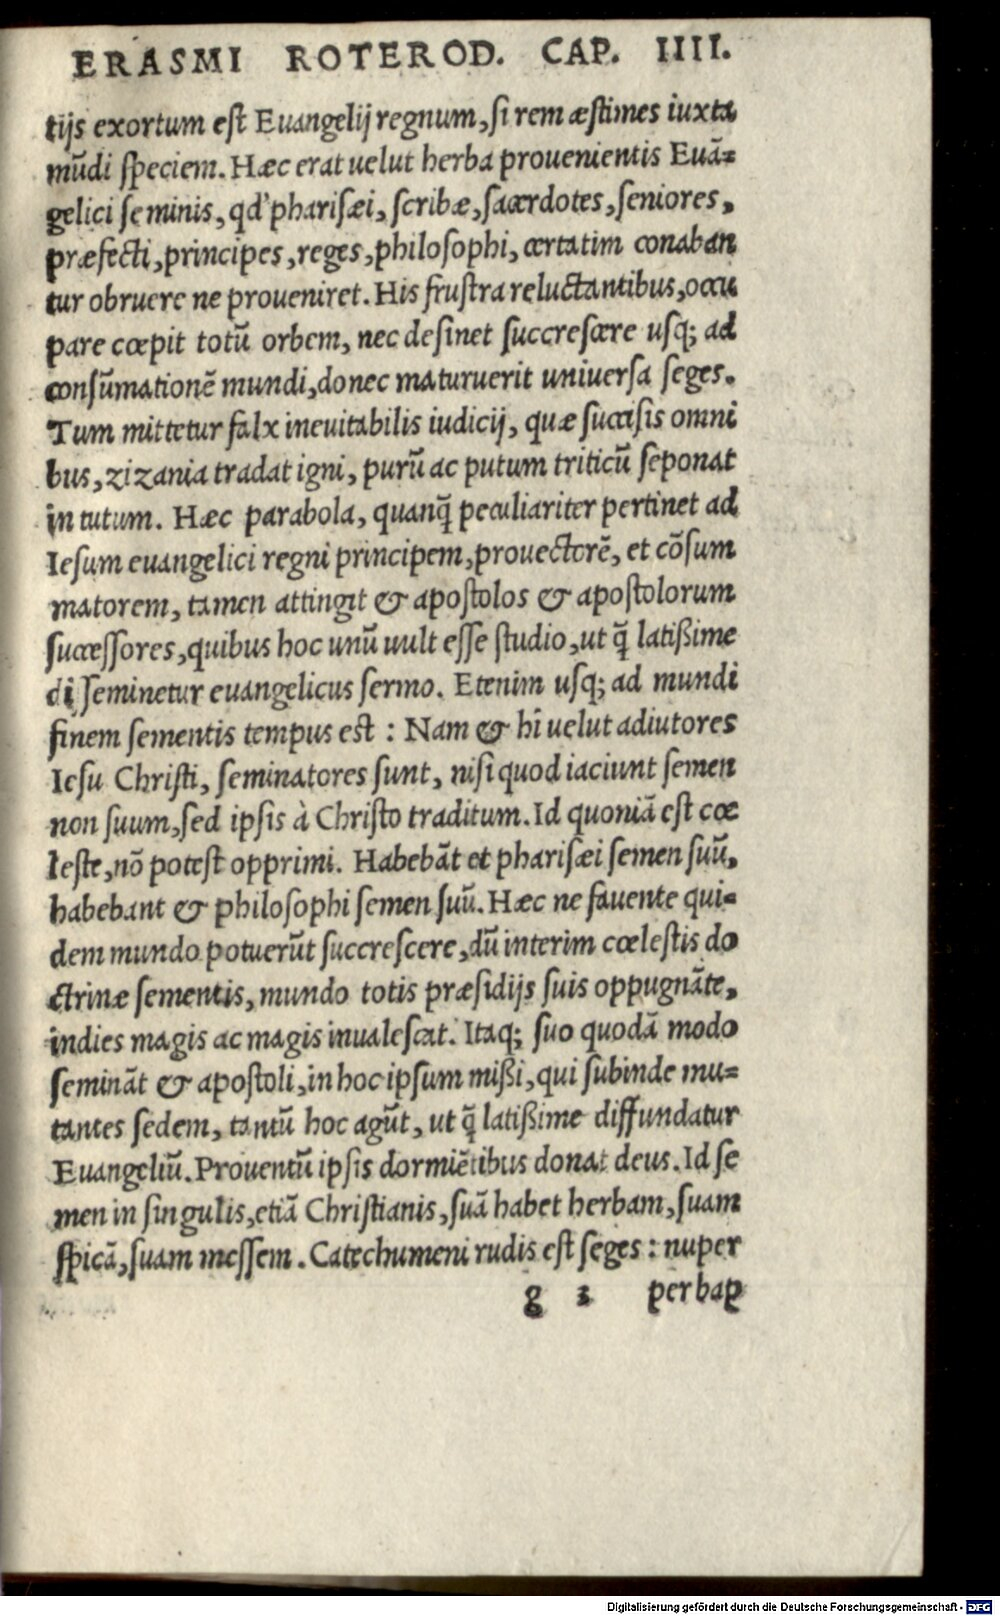 ERASMI ROTEROD. CAP. IIII.
tijs exortum est Euangelij regnum, si rem æstimes iuxta
mūdi speciem. Hæc erat uelut herba prouenientis Euā=
gelici seminis, qd' pharisæi, scribæ, sacerdotes, seniores,
præfecti, principes, reges, philosophi, certatim conaban
tur obruere ne proueniret. His frustra reluctantibus, occu
pare cœpit totū orbem, nec desinet succrescere usq; ad
consūmationē mundi, donec maturuerit uniuersa seges.
Tum mittetur falx ineuitabilis iudicij, quæ succisis omni
bus, zizania tradat igni, purū ac putum triticū seponat
in tutum. Hæc parabola, quanq̄ peculiariter pertinet ad
Iesum euangelici regni principem, prouectorē, et cōsum
matorem, tamen attingit & apostolos & apostolorum
successores, quibus hoc unū uult esse studio, ut q̄ latißime
disseminetur euangelicus sermo. Etenim usq; ad mundi
finem sementis tempus est : Nam & hi uelut adiutores
Iesu Christi, seminatores sunt, nisi quod iaciunt semen
non suum, sed ipsis à Christo traditum. Id quoniā est cœ
leste, nō potest opprimi. Habebāt et pharisæi semen suū,
habebant & philosophi semen suū. Hæc ne fauente qui=
dem mundo potuerūt succrescere, dū interim cœlestis do
ctrinæ sementis, mundo totis præsidijs suis oppugnāte,
indies magis ac magis inualescat. Itaq; suo quodā modo
semināt & apostoli, in hoc ipsum mißi, qui subinde mu=
tantes sedem, tantū hoc agūt, ut q̄ latißime diffundatur
Euangeliū. Prouentū ipsis dormiētibus donat deus. Id se
men in singulis, etiā Christianis, suā habet herbam, suam
spicā, suam messem. Catechumeni rudis est seges : nuper
g 3 per bap
Digitalisierung gefördert durch die Deutsche Forschungsgemeinschaft - DFG